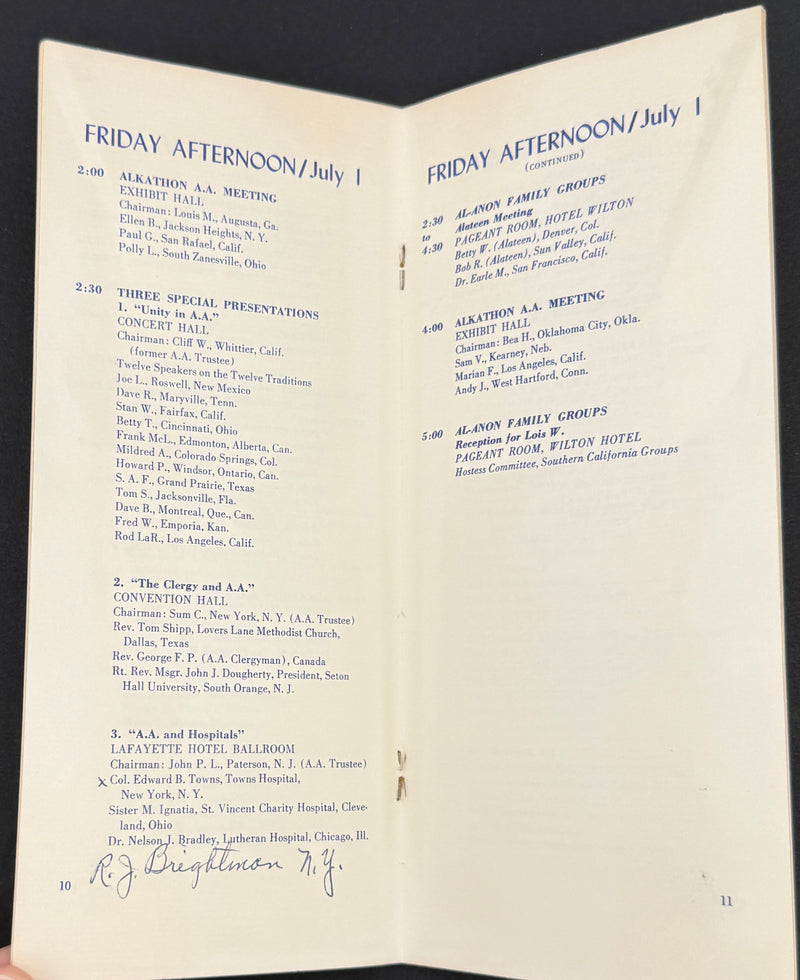 FRIDAY AFTERNOON/July 1
2:00 ALKATHON A.A. MEETING
EXHIBIT HALL
Chairman: Louis M., Augusta, Ga.
Ellen B., Jackson Heights, N. Y.
Paul G., San Rafael, Calif.
Polly L., South Zanesville, Ohio
2:30 THREE SPECIAL PRESENTATIONS
1. “Unity in A.A.”
CONCERT HALL
Chairman: Cliff W., Whittier, Calif.
(former A.A. Trustee)
Twelve Speakers on the Twelve Traditions
Joe L., Roswell, New Mexico
Dave R., Maryville, Tenn.
Stan W., Fairfax, Calif.
Betty T., Cincinnati, Ohio
Frank McL., Edmonton, Alberta, Can.
Mildred A., Colorado Springs, Col.
Howard P., Windsor, Ontario, Can.
S. A. F., Grand Prairie, Texas
Tom S., Jacksonville, Fla.
Dave B., Montreal, Que., Can.
Fred W., Emporia, Kan.
Rod LaR., Los Angeles, Calif.
2. “The Clergy and A.A.”
CONVENTION HALL
Chairman: Sum C., New York, N. Y. (A.A. Trustee)
Rev. Tom Shipp, Lovers Lane Methodist Church,
Dallas, Texas
Rev. George F. P. (A.A. Clergyman), Canada
Rt. Rev. Msgr. John J. Dougherty, President, Seton
Hall University, South Orange, N. J.
3. “A.A. and Hospitals”
LAFAYETTE HOTEL BALLROOM
Chairman: John P. L., Paterson, N. J. (A.A. Trustee)
x Col. Edward B. Towns, Towns Hospital,
New York, N. Y.
Sister M. Ignatia, St. Vincent Charity Hospital, Cleve-
land, Ohio
Dr. Nelson J. Bradley, Lutheran Hospital, Chicago, Ill.
R. J. Brightman N.Y.
10
FRIDAY AFTERNOON/July 1
(CONTINUED)
2:30 AL-ANON FAMILY GROUPS
to Alateen Meeting
4:30 PAGEANT ROOM, HOTEL WILTON
Betty W. (Alateen), Denver, Col.
Bob R. (Alateen), Sun Valley, Calif.
Dr. Earle M., San Francisco, Calif.
4:00 ALKATHON A.A. MEETING
EXHIBIT HALL
Chairman: Bea H., Oklahoma City, Okla.
Sam V., Kearney, Neb.
Marian F., Los Angeles, Calif.
Andy J., West Hartford, Conn.
5:00 AL-ANON FAMILY GROUPS
Reception for Lois W.
PAGEANT ROOM, WILTON HOTEL
Hostess Committee, Southern California Groups
11